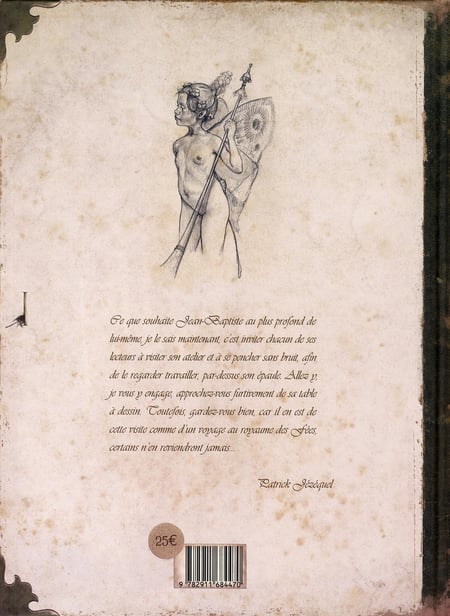 Ce que souhaite Jean-Baptiste au plus profond de
lui-même, je le sais maintenant, c'est inviter chacun de ses
lecteurs à visiter son atelier et à se pencher sans bruit, afin
de le regarder travailler, par-dessus son épaule. Allez y,
je vous y engage, approchez-vous furtivement de sa table
à dessin. Toutefois, gardez-vous bien, car il en est de
cette visite comme d'un voyage au royaume des Fées,
certains n'en reviendront jamais...
Patrick Jézéquel
25€
9 782911 684470